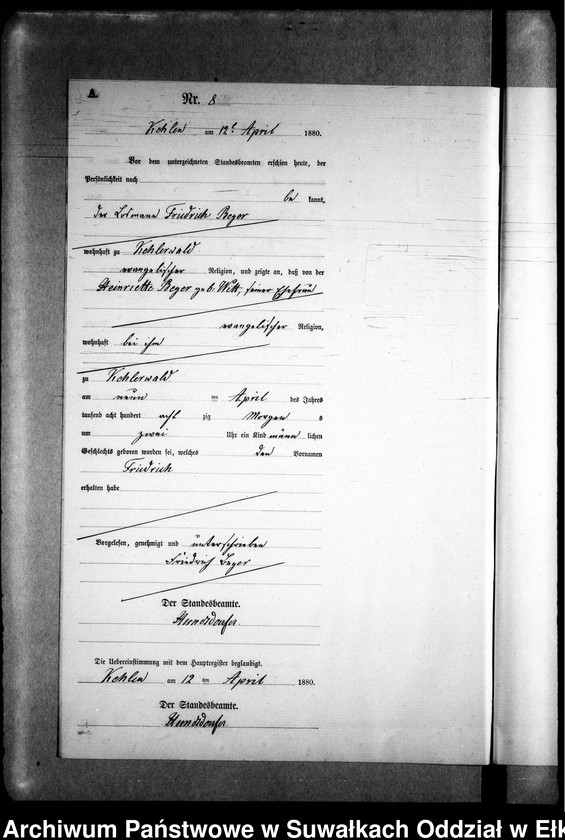 A.
Nr. 8
Kehlen am 12t April 1880.
Vor dem unterzeichneten Standesbeamten erschien heute, der
Persönlichkeit nach
be kannt,
der Losmann Friedrich Beyer
wohnhaft zu Kehlerwald
evangelischer Religion, und zeigte an, daß von der
Heinriette Beyer geb. Witt, seiner Ehefrau
evangelischer Religion,
wohnhaft bei ihm
zu Kehlerwald
am neun ten April des Jahres
tausend acht hundert acht zig Morgen s
um zwei Uhr ein Kind männ lichen
Geschlechts geboren worden sei, welches den Vornamen
Friedrich
erhalten habe
Vorgelesen, genehmigt und unterschrieben
Friedrich Beyer
Der Standesbeamte.
Die Uebereinstimmung mit dem Hauptregister beglaubigt.
Kehlen am 12 ten April 1880.
Der Standesbeamte.
Archiwum Państwowe w Suwałkach Oddział w Ełk